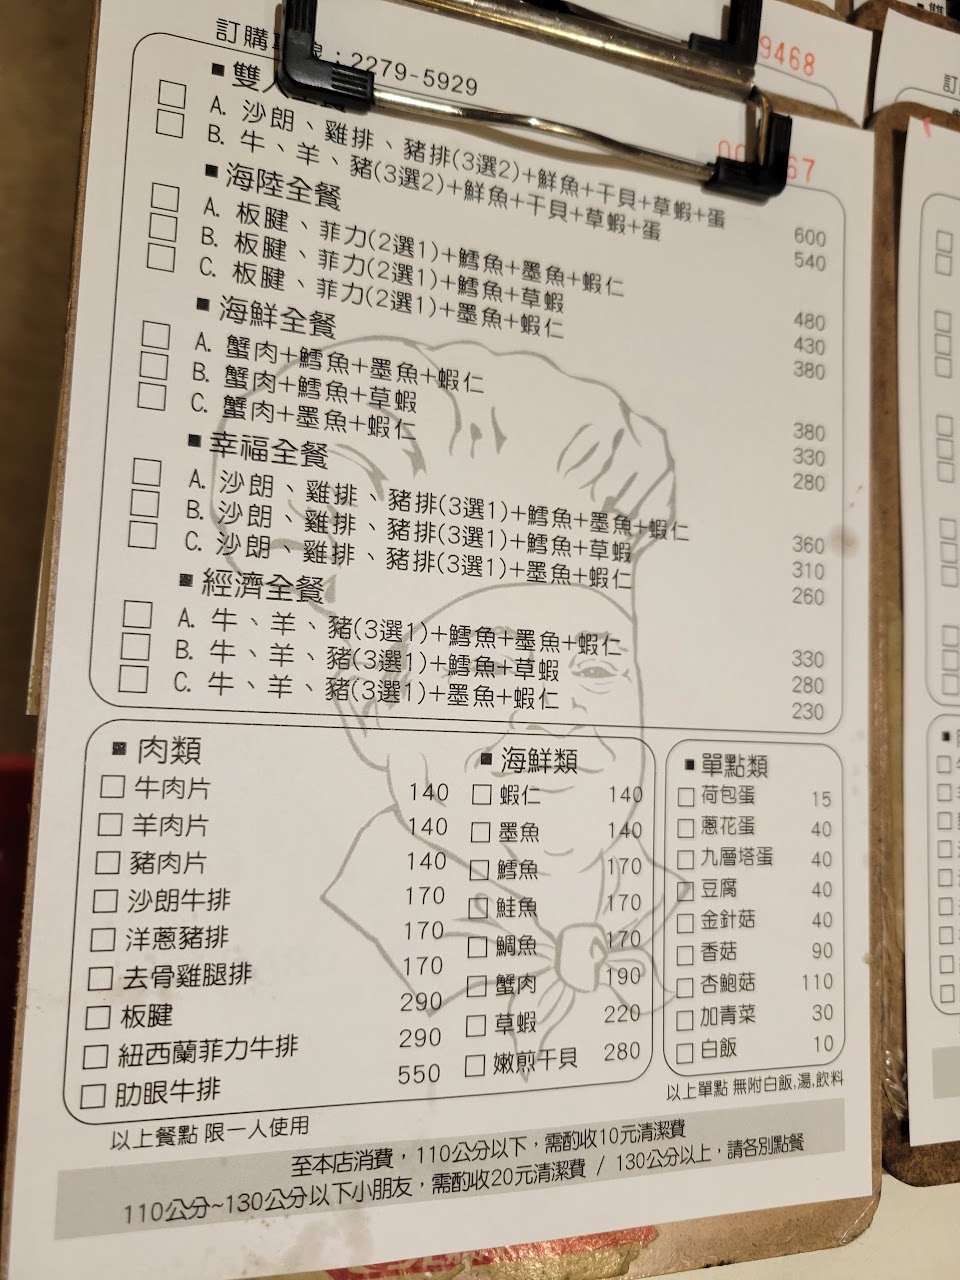 訂購專線：2279-5929
9468
■雙人全餐
A. 沙朗、雞排、豬排(3選2)+鮮魚+干貝+草蝦+蛋 600
B. 牛、羊、豬(3選2)+鮮魚+干貝+草蝦+蛋 540
■海陸全餐
A. 板腱、菲力(2選1)+鱈魚+墨魚+蝦仁 480
B. 板腱、菲力(2選1)+鱈魚+草蝦 430
C. 板腱、菲力(2選1)+墨魚+蝦仁 380
■海鮮全餐
A. 蟹肉+鱈魚+墨魚+蝦仁 380
B. 蟹肉+鱈魚+草蝦 330
C. 蟹肉+墨魚+蝦仁 280
■幸福全餐
A. 沙朗、雞排、豬排(3選1)+鱈魚+墨魚+蝦仁 360
B. 沙朗、雞排、豬排(3選1)+鱈魚+草蝦 310
C. 沙朗、雞排、豬排(3選1)+墨魚+蝦仁 260
■經濟全餐
A. 牛、羊、豬(3選1)+鱈魚+墨魚+蝦仁 330
B. 牛、羊、豬(3選1)+鱈魚+草蝦 280
C. 牛、羊、豬(3選1)+墨魚+蝦仁 230
■肉類
牛肉片 140
羊肉片 140
豬肉片 140
沙朗牛排 170
洋蔥豬排 170
去骨雞腿排 170
板腱 290
紐西蘭菲力牛排 290
肋眼牛排 550
■海鮮類
蝦仁 140
墨魚 140
鱈魚 170
鮭魚 170
鯛魚 170
蟹肉 190
草蝦 220
嫩煎干貝 280
■單點類
荷包蛋 15
蔥花蛋 40
九層塔蛋 40
豆腐 40
金針菇 40
香菇 90
杏鮑菇 110
加青菜 30
白飯 10
以上餐點 限一人使用
以上單點 無附白飯,湯,飲料
至本店消費，110公分以下，需酌收10元清潔費
110公分~130公分以下小朋友，需酌收20元清潔費 / 130公分以上，請各別點餐